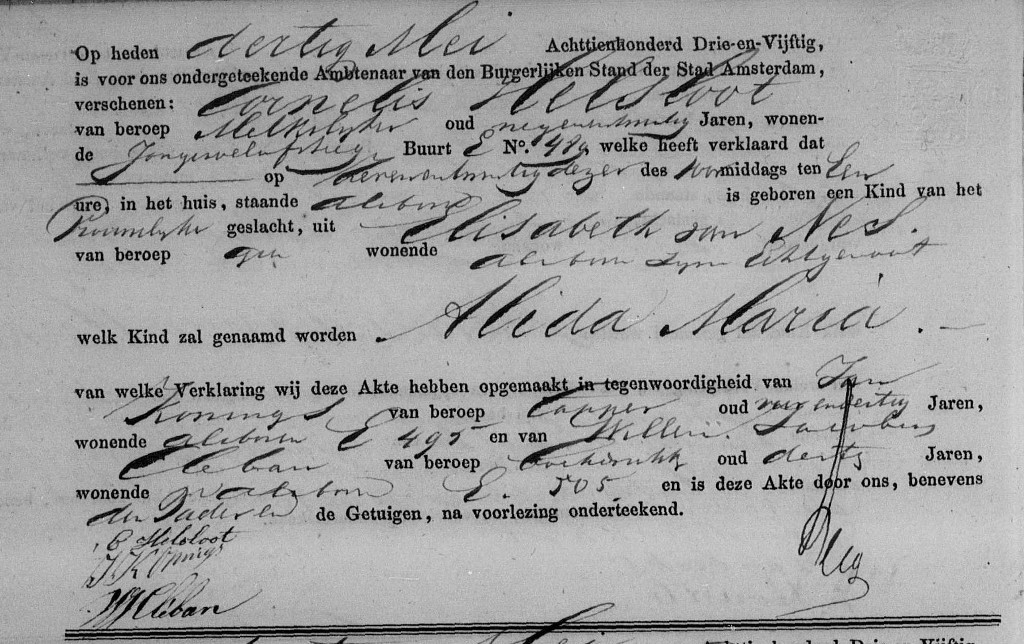 Op heden dertig Mei Achttienhonderd Drie-en-Vijftig,
is voor ons ondergeteekende Ambtenaar van den Burgerlijken Stand der Stad Amsterdam,
verschenen: Cornelis Helsloot
van beroep Melkslyter oud negenentwintig Jaren, wonen-
de Buurt E No. 489, welke heeft verklaard dat
op dezer des Voormiddags ten Een
ure, in het huis, staande alsboven is geboren een Kind van het
Vrouwelyke geslacht, uit Elisabeth van Nes.
van beroep geen wonende alsboven zyne Echtgenoot
welk Kind zal genaamd worden Alida Maria.
van welke Verklaring wij deze Akte hebben opgemaakt in tegenwoordigheid van Jan
Konings van beroep Tapper oud Jaren,
wonende alsboven E 495 en van Willem
Cleban van beroep oud dertig Jaren,
wonende alsboven E. 505, en is deze Akte door ons, benevens
den Vader en de Getuigen, na voorlezing onderteekend.
C Helsloot
J Konings
W Cleban